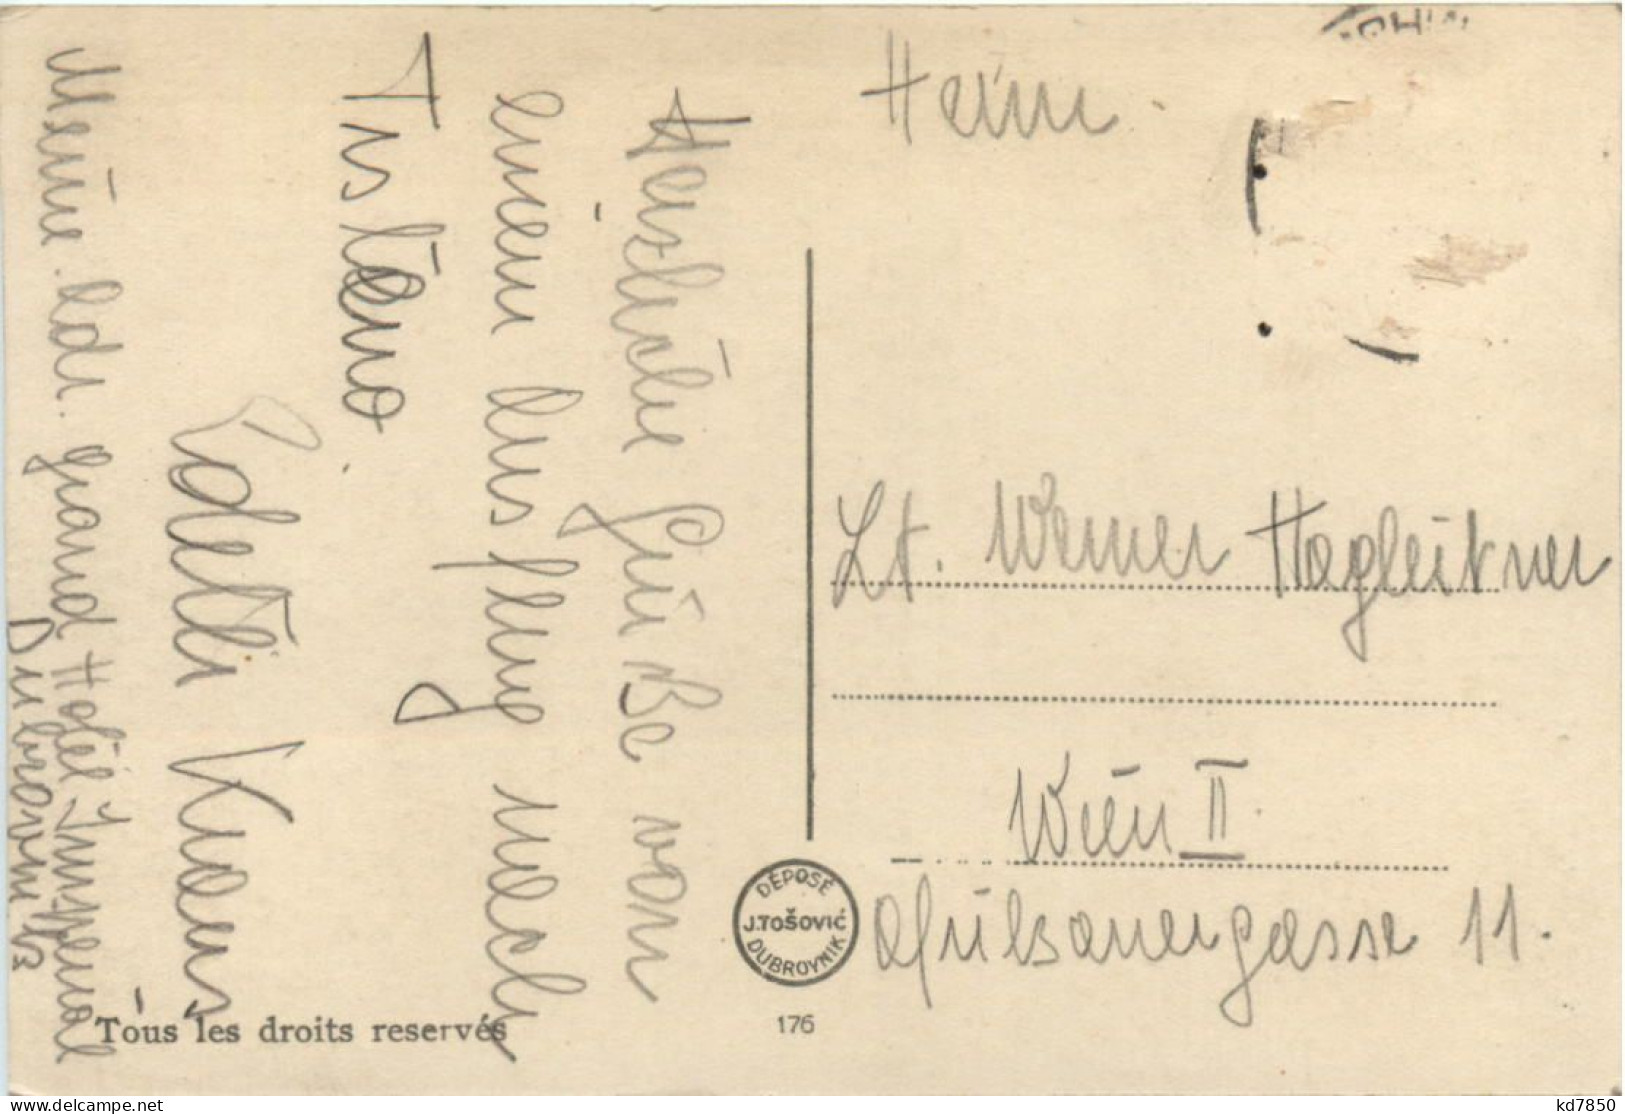 Herzliche Grüße von
einem Ausflug nach
Trsteno.
Edith Kraus
Meine Adr. Grand Hotel Imperial
Dubrovnik
Tous les droits reservés
Herrn
Lt. Werner Hagleitner
Wien II.
Afrikanergasse 11.
DÉPOSÉ
J. TOŠOVIĆ
DUBROVNIK
176
www.delcampe.net
kd7850